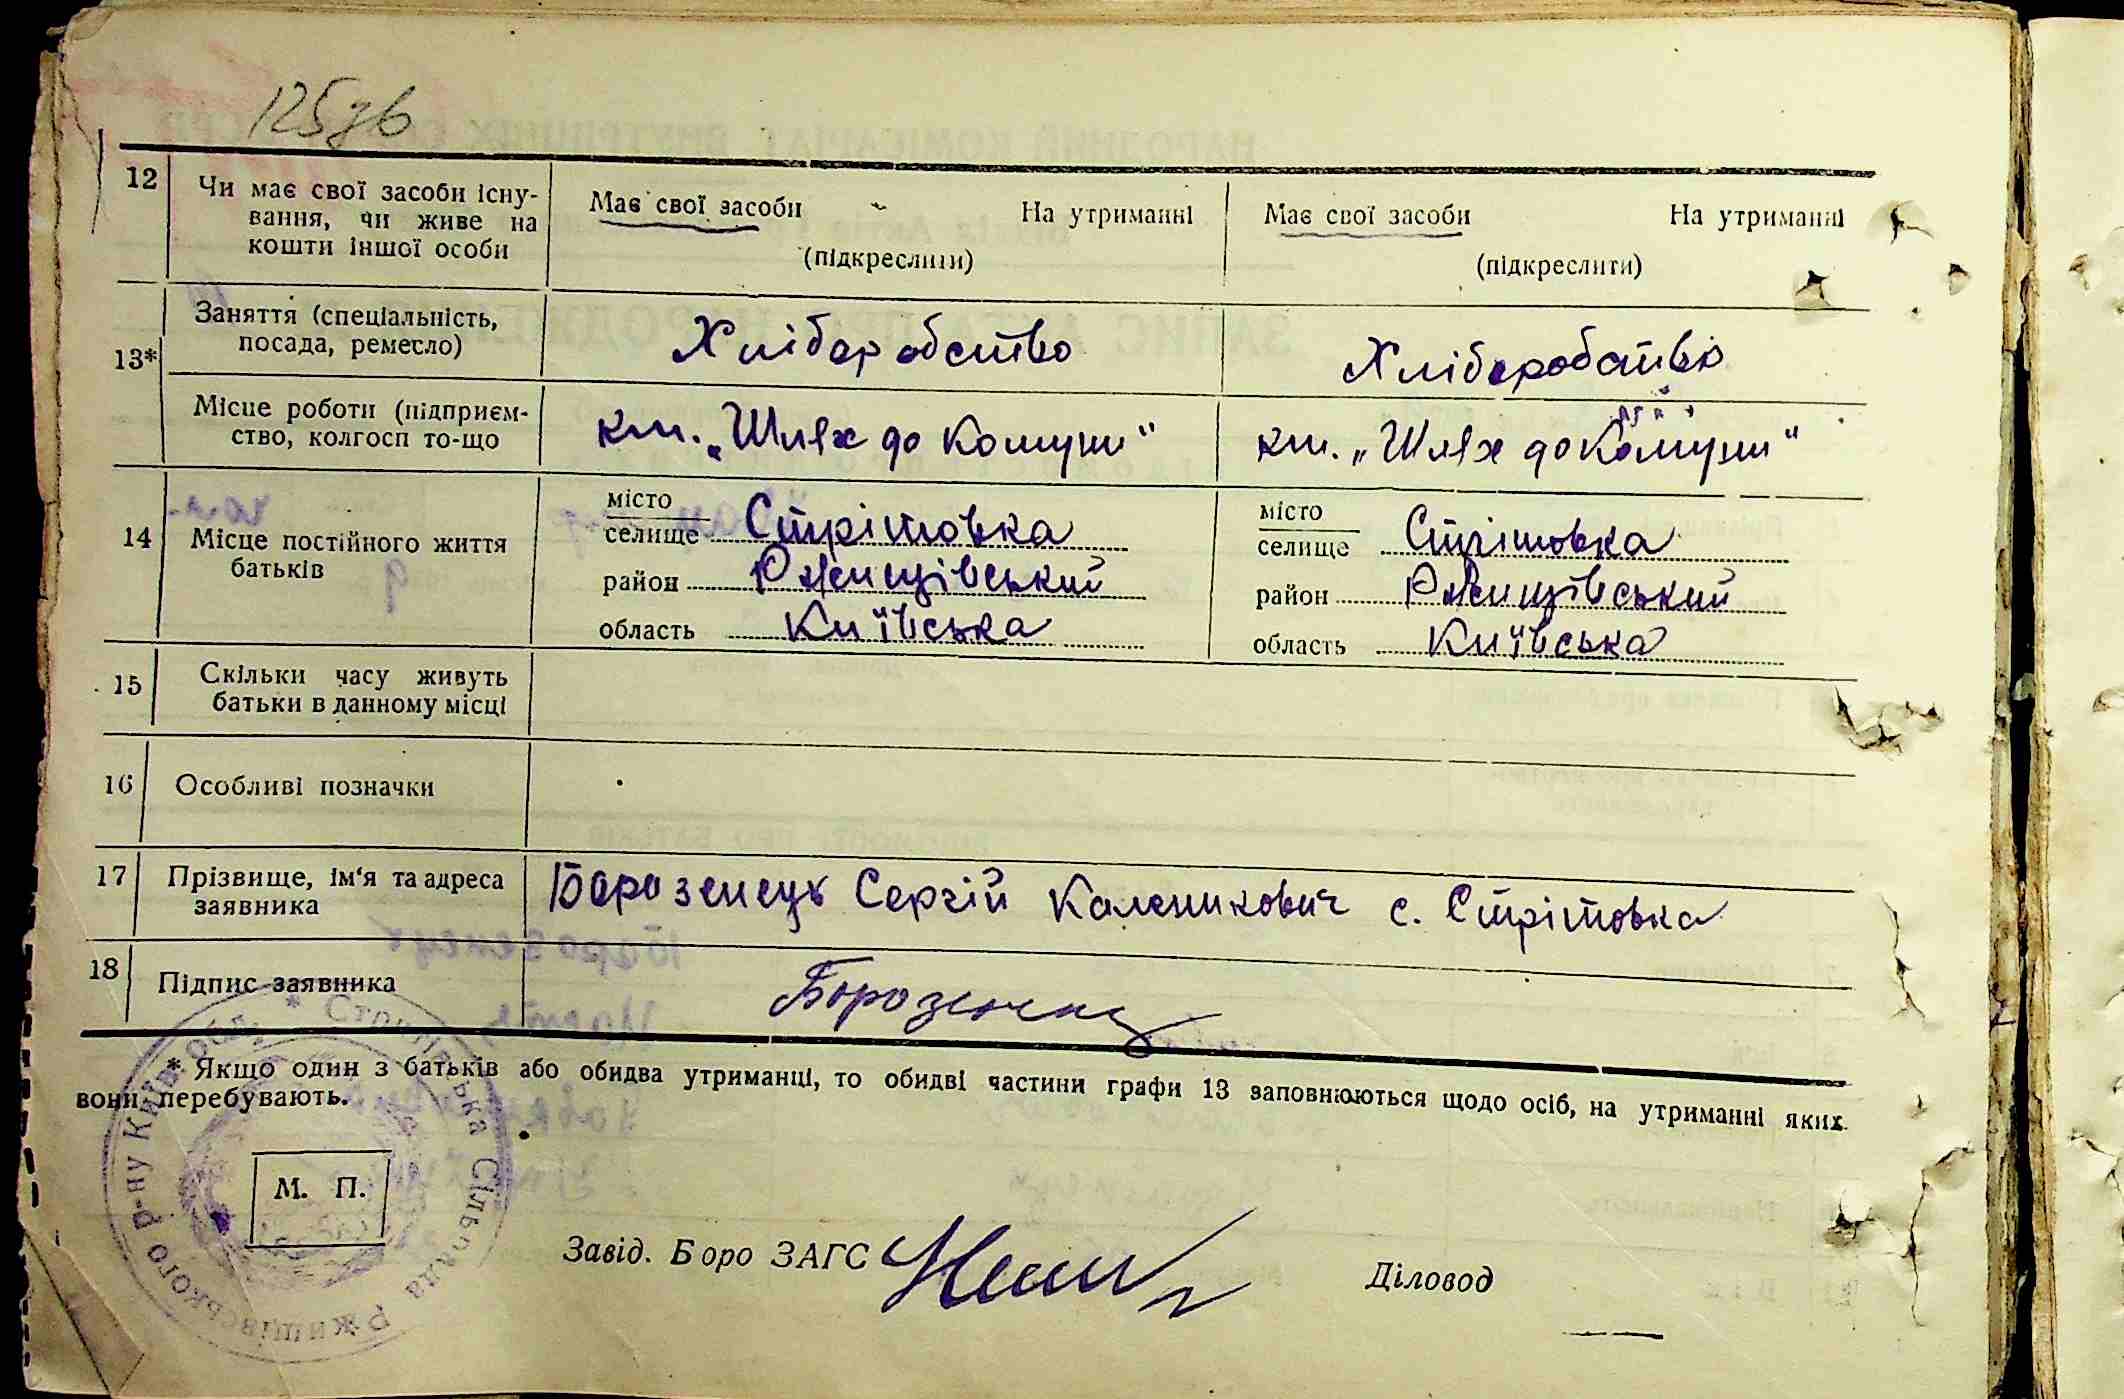 125зв
12 Чи має свої засоби існу- Має свої засоби На утриманні Має свої засоби На утриманні
вання, чи живе на
кошти іншої особи (підкреслити) (підкреслити)
13* Заняття (спеціальність, Хліборобство Хліборобство
посада, ремесло)
Місце роботи (підприєм- кт. „Шлях до Комуни" кт. „Шлях до Комуни"
ство, колгосп то-що
14 Місце постійного життя
батьків
місто місто
селище Стрітовка селище Стрітовка
район Ржищівський район Ржищівський
область Київська область Київська
15 Скільки часу живуть
батьки в данному місці
16 Особливі позначки
17 Прізвище, ім'я та адреса Борозенець Сергій Каленикович с. Стрітовка
заявника
18 Підпис заявника Борозенец
* Якщо один з батьків або обидва утриманці, то обидві частини графи 13 заповнюються щодо осіб, на утриманні яких
вони перебувають.
М. П.
Завід. Бюро ЗАГС Діловод
Сільрада Ржищівського р-ну Київ. обл.